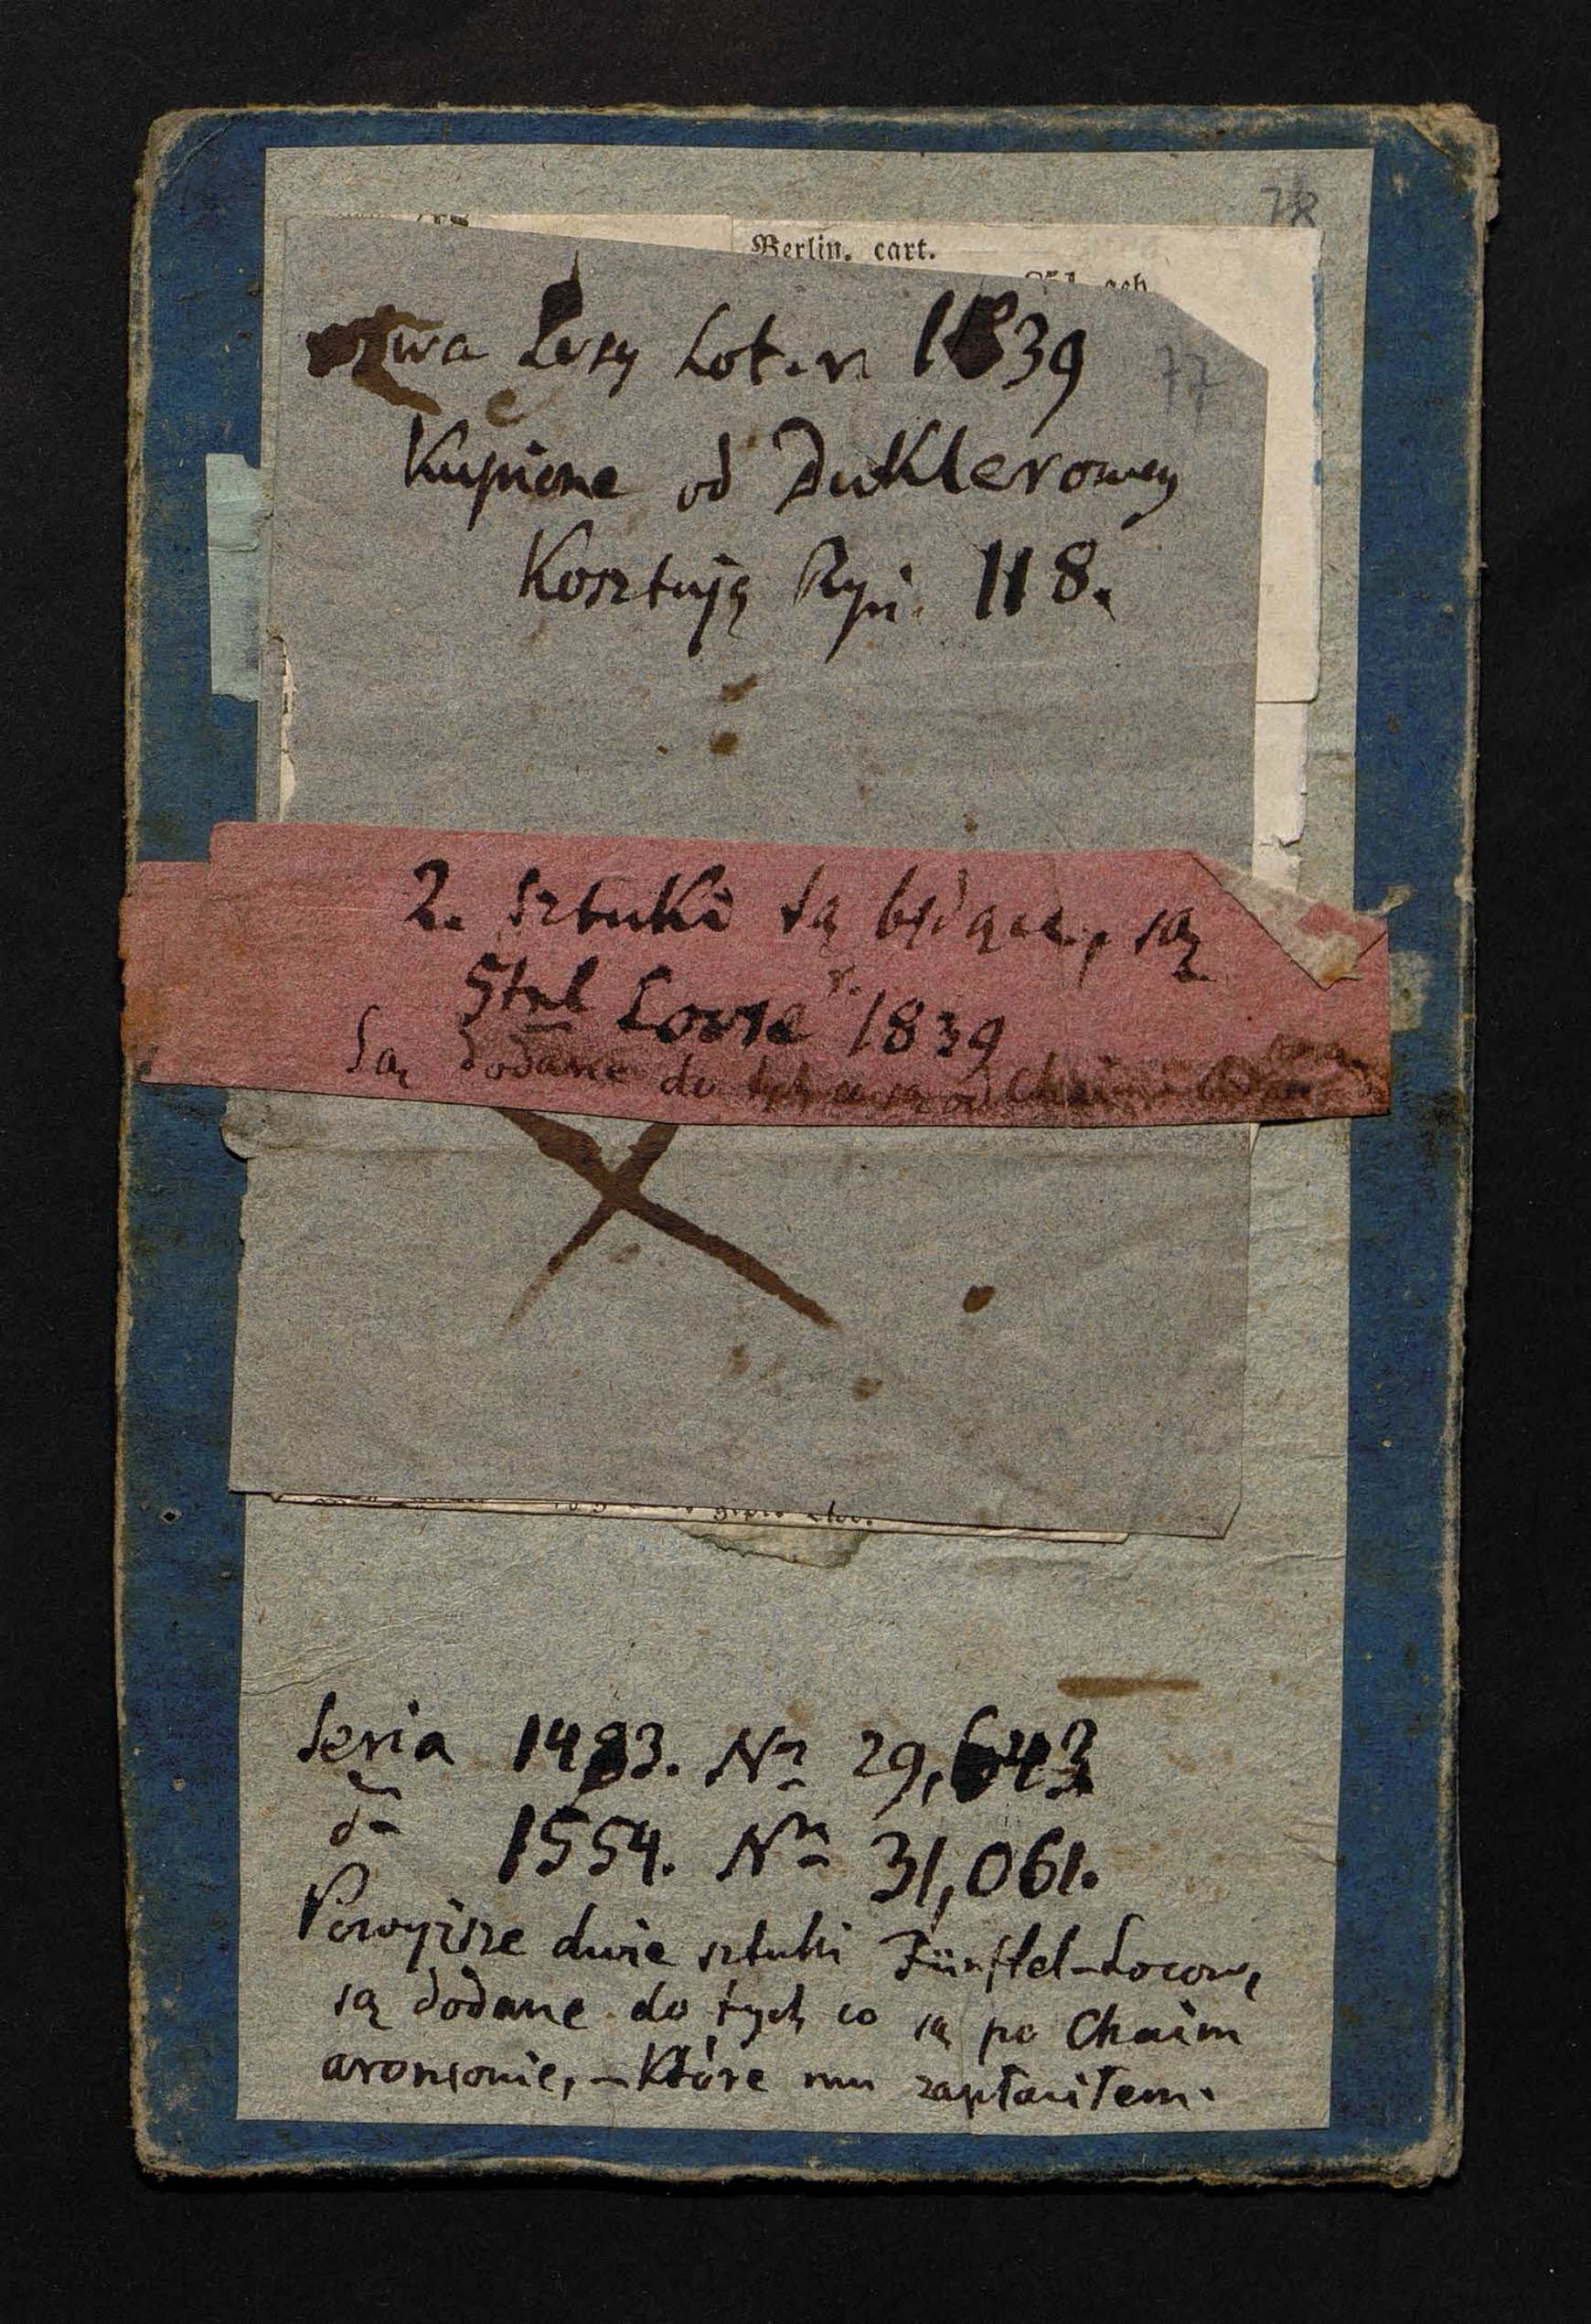 78
Berlin. cart.
geb
Losy Lot. r. 1839
77
Kupione od Duklerowey
Kosztują Ryń. 118.
2. sztuki tą będące, są
5tel Losse r. 1839
Są dodane do tych co są od Chaim
Seria 1483. Nr 29,643
do 1554. Nro 31,061.
Powyższe dwie sztuki Fünftel-Losow,
są dodane do tych co są po Chaim
aronsonie, – Które mu zapłaciłem.